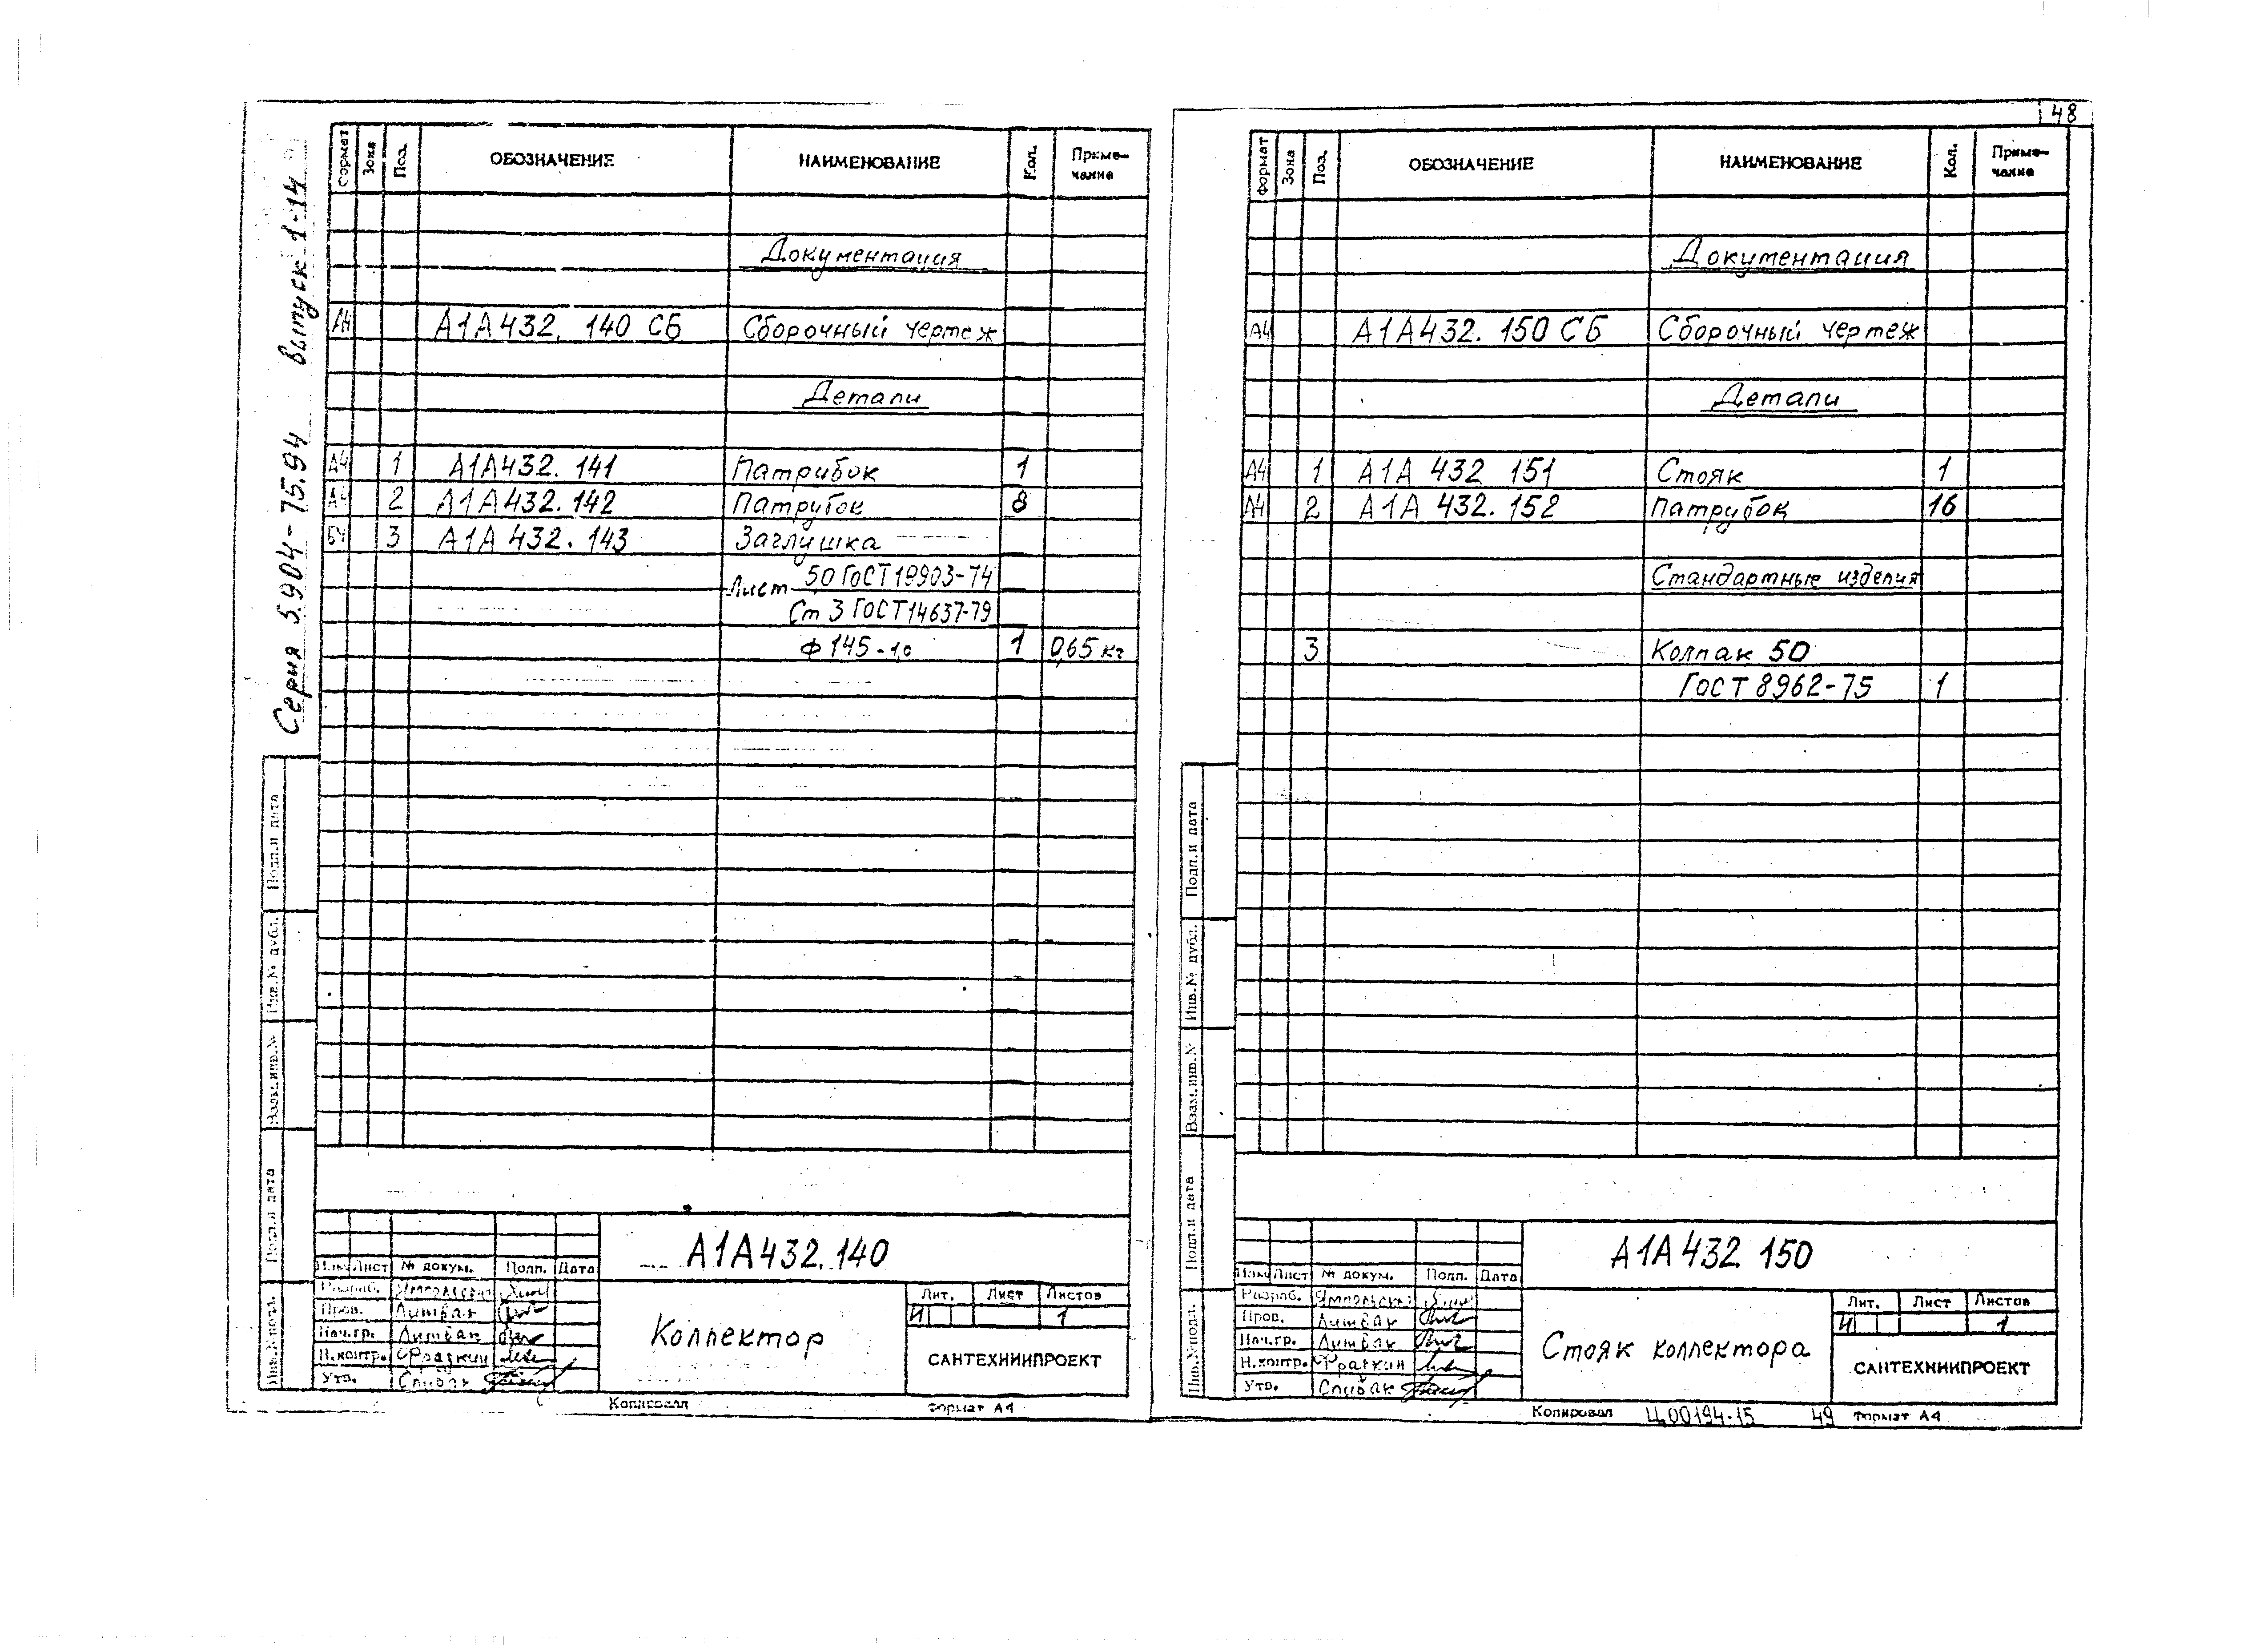 48
Серия 5.904-75.94 выпуск 1-14
Формат Зона Поз. ОБОЗНАЧЕНИЕ НАИМЕНОВАНИЕ Кол. Приме-
чание
Документация
А4 А1А432. 140 СБ Сборочный чертеж
Детали
А4 1 А1А432. 141 Патрубок 1
А4 2 А1А432. 142 Патрубок 8
БЧ 3 А1А 432. 143 Заглушка
Лист 5,0 ГОСТ 19903-74
Ст 3 ГОСТ 14637-79
Ф 145 - 1,0 1 0,65 кг
Подп.и дата
Инв.№ дубл.
Взам.инв.№
Подп.и дата
Инв.№подл.
А1А432.140
Изм Лист № докум. Подп. Дата
Разраб. Ямпольский
Пров. Литвак
Нач.гр. Литвак
Н.контр. Фрадкин
Утв. Спивак
Коллектор
Лит. Лист Листов
И 1
САНТЕХНИИПРОЕКТ
Копировал Формат А4
Формат Зона Поз. ОБОЗНАЧЕНИЕ НАИМЕНОВАНИЕ Кол. Приме-
чание
Документация
А4 А1А432. 150 СБ Сборочный чертеж
Детали
А4 1 А1А 432 151 Стояк 1
А4 2 А1А 432. 152 Патрубок 16
Стандартные изделия
3 Колпак 50
ГОСТ 8962-75 1
Подп.и дата
Инв.№ дубл.
Взам.инв.№
Подп.и дата
Инв.№подл.
А1А432 150
Изм Лист № докум. Подп. Дата
Разраб. Ямпольский
Пров. Литвак
Нач.гр. Литвак
Н.контр. Фрадкин
Утв. Спивак
Стояк коллектора
Лит. Лист Листов
И 1
САНТЕХНИИПРОЕКТ
Копировал Ц00194-15 49 Формат А4